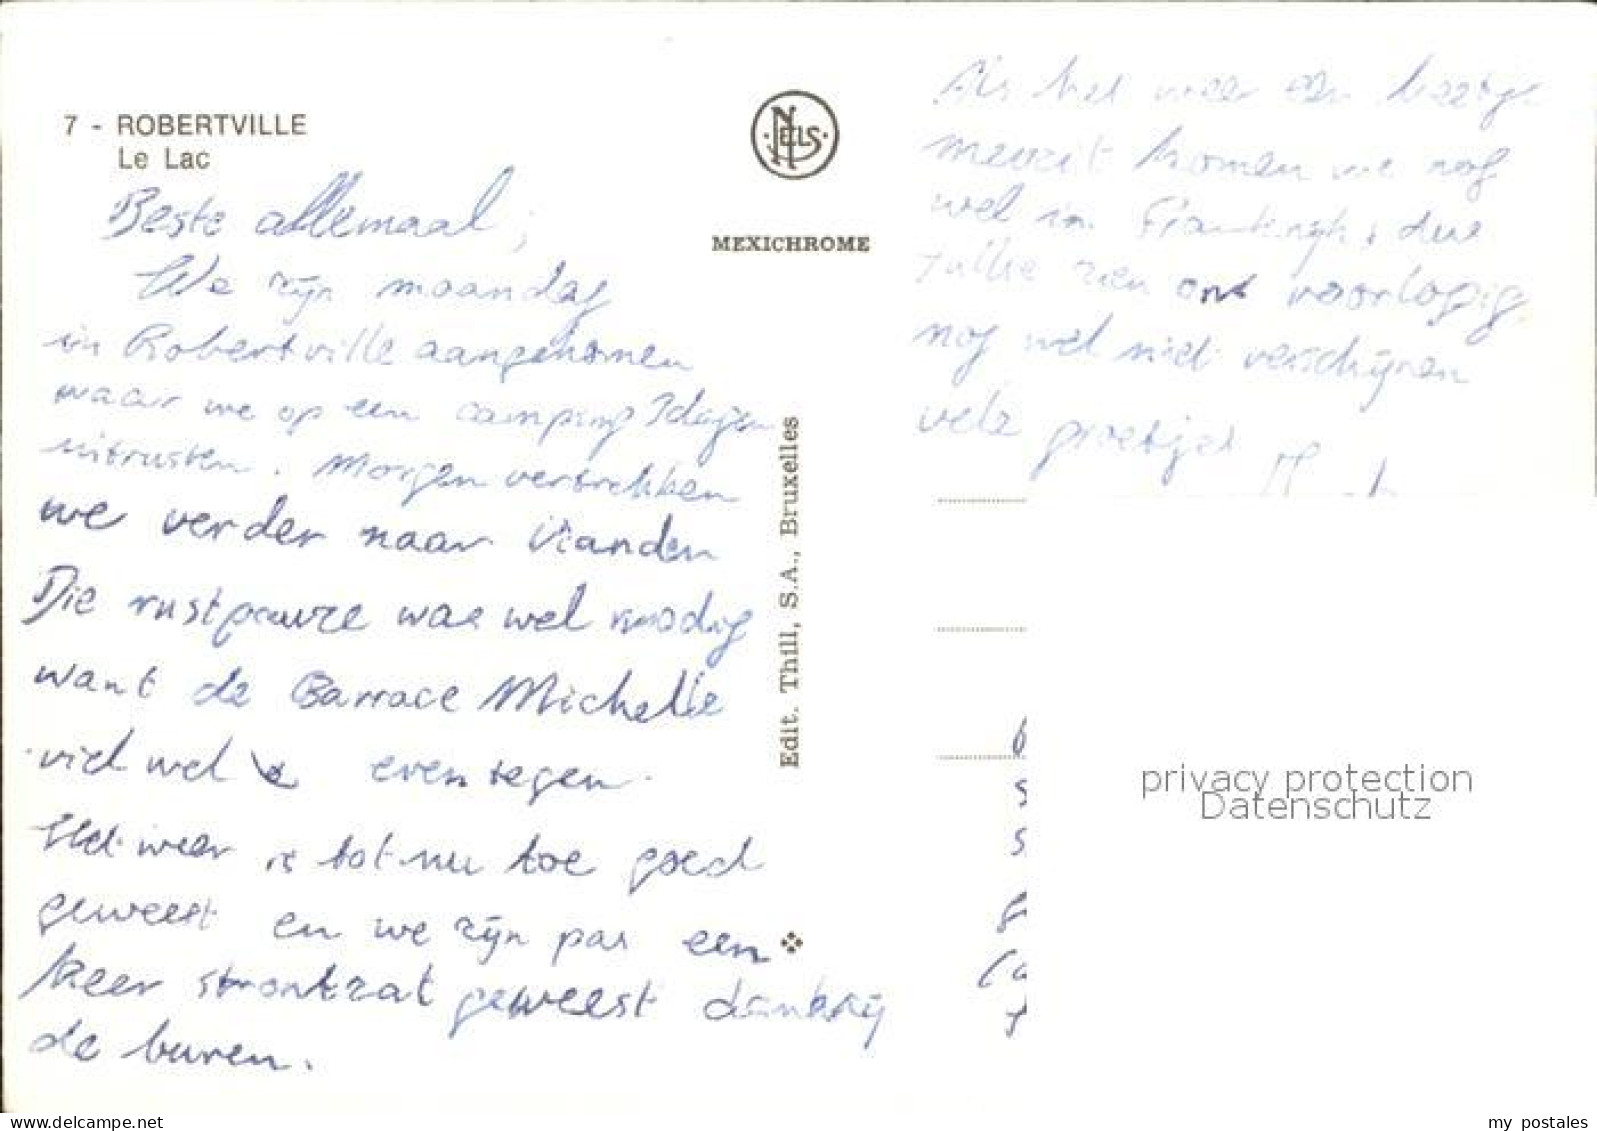 7 - ROBERTVILLE
Le Lac
NELS
MEXICHROME
Edit. Thill, S.A., Bruxelles
Beste allemaal,
We zijn maandag
in Robertville aangekomen
waar we op een camping 3 dagen
uitrusten. Morgen vertrekken
we verder naar Vianden
Die rustpauze was wel nodig
want de Barrace Michelle
viel wel even tegen.
Het weer is tot nu toe goed
geweest en we zijn pas een
keer strontzat geweest dankzij
de buren.
Als het weer een beetje
meezit komen we nog
wel in Frankrijk, dus
jullie zien ons voorlopig
nog wel niet verschijnen
vele groetjes
privacy protection
Datenschutz
delcampe.net
my_postales